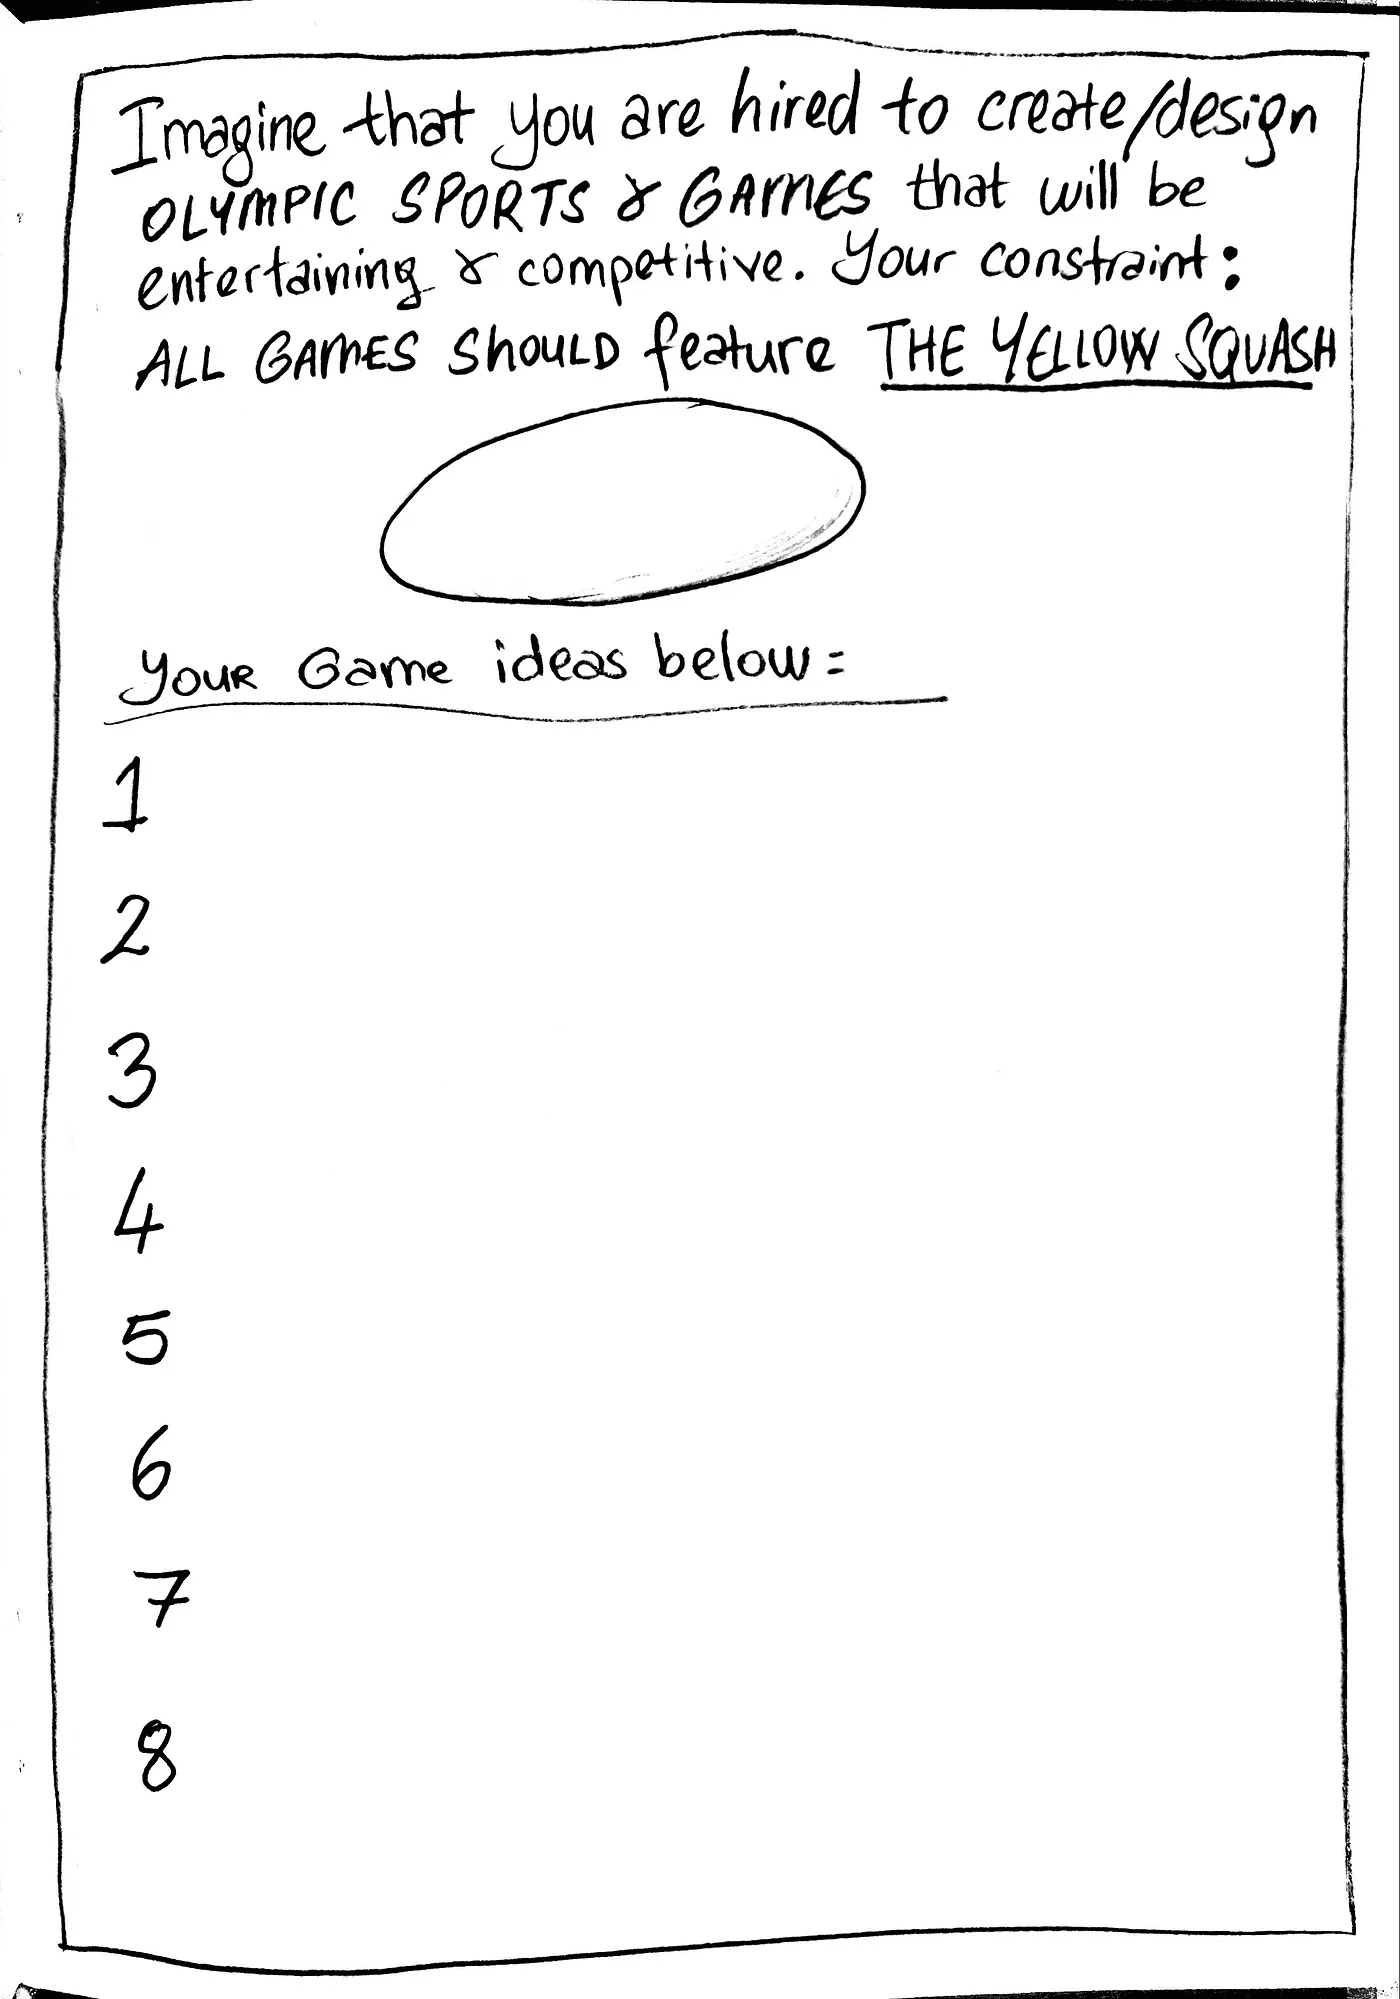 Imagine that you are hired to create/design
OLYMPIC SPORTS & GAMES that will be
entertaining & competitive. Your constraint:
ALL GAMES SHOULD feature THE YELLOW SQUASH
Your Game ideas below:
1
2
3
4
5
6
7
8